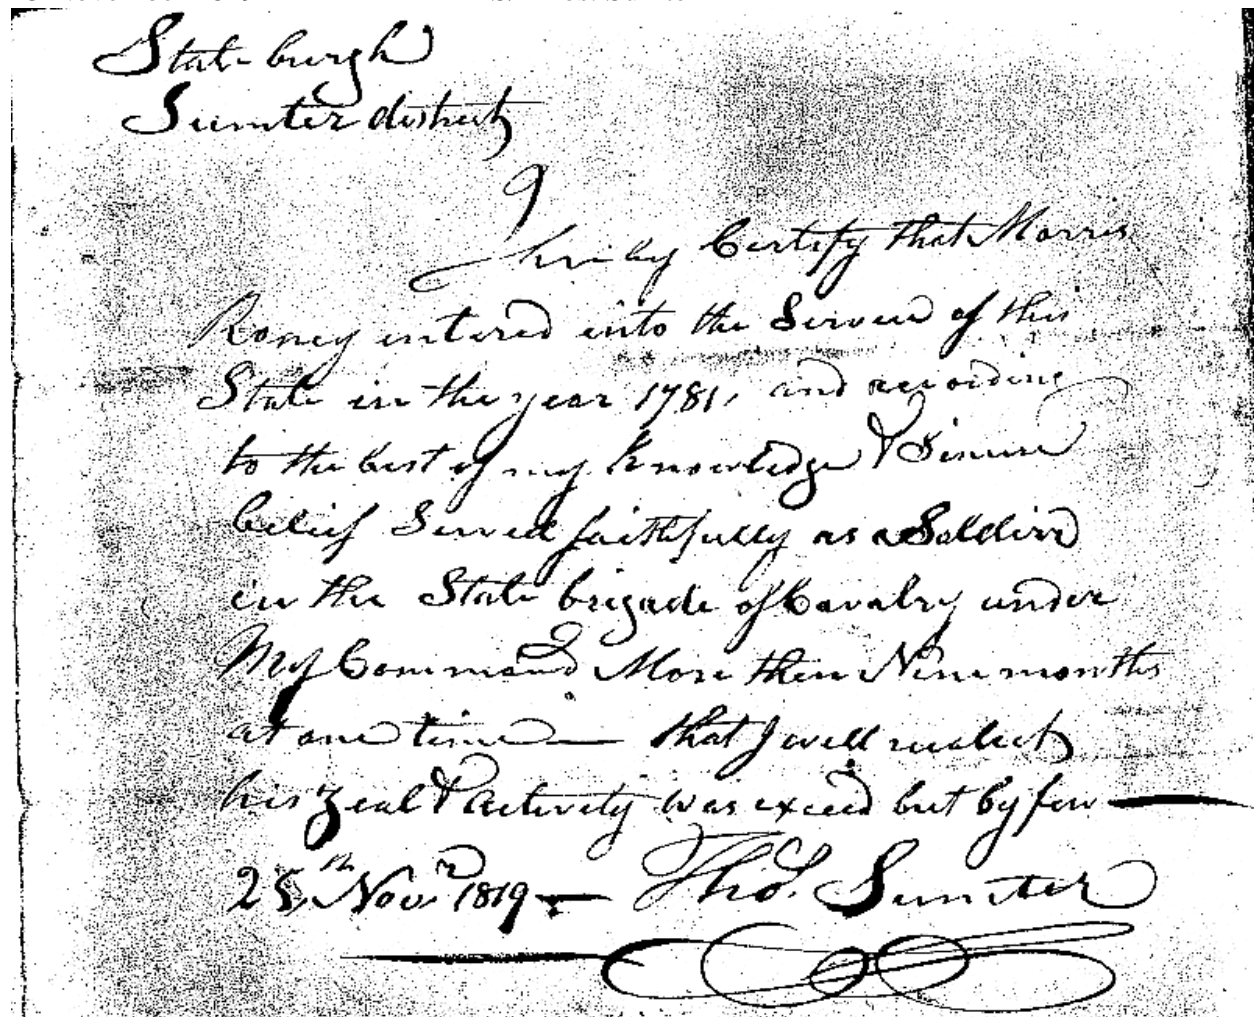 State burgh
Sumter district
I
hereby Certify that Morris
Roney entered into the Service of this
State in the year 1781, and according
to the best of my knowledge & Sincere
belief Served faithfully as a Soldier
in the State brigade of Cavalry under
My Command More then Nine months
at one time — that I well recolect
his zeal & activity was exceed but by few —
25th Novr 1819 — Thos. Sumter